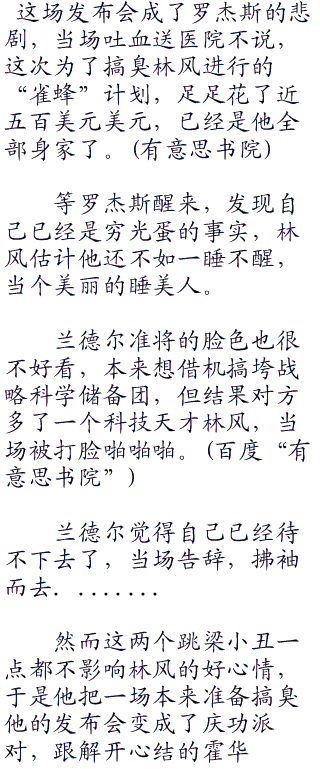 这场发布会成了罗杰斯的悲
剧，当场吐血送医院不说，
这次为了搞臭林风进行的
“雀蜂”计划，足足花了近
五百美元美元，已经是他全
部身家了。(有意思书院)
等罗杰斯醒来，发现自
己已经是穷光蛋的事实，林
风估计他还不如一睡不醒，
当个美丽的睡美人。
兰德尔准将的脸色也很
不好看，本来想借机搞垮战
略科学储备团，但结果对方
多了一个科技天才林风，当
场被打脸啪啪啪。(百度“有
意思书院”)
兰德尔觉得自己已经待
不下去了，当场告辞，拂袖
而去．.......
然而这两个跳梁小丑一
点都不影响林风的好心情，
于是他把一场本来准备搞臭
他的发布会变成了庆功派
对，跟解开心结的霍华